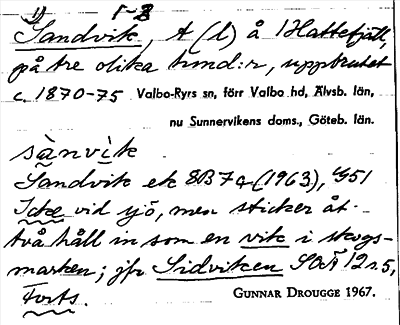 1) 1-2
Sandvik, t (l) å Hattefjäll,
på tre olika hmd:n, uppbrutet
c. 1870-75 Valbo-Ryrs sn, förr Valbo hd, Älvsb. län,
nu Sunnervikens doms., Göteb. län.
sànvik
Sandvik ek 8B7a (1963), G51
Icke vid sjö, men sticker åt
två håll in som en vik i skogs-
marken; jfr Sidviken SOÄ 12 s. 5,
Forts.
GUNNAR DROUGGE 1967.